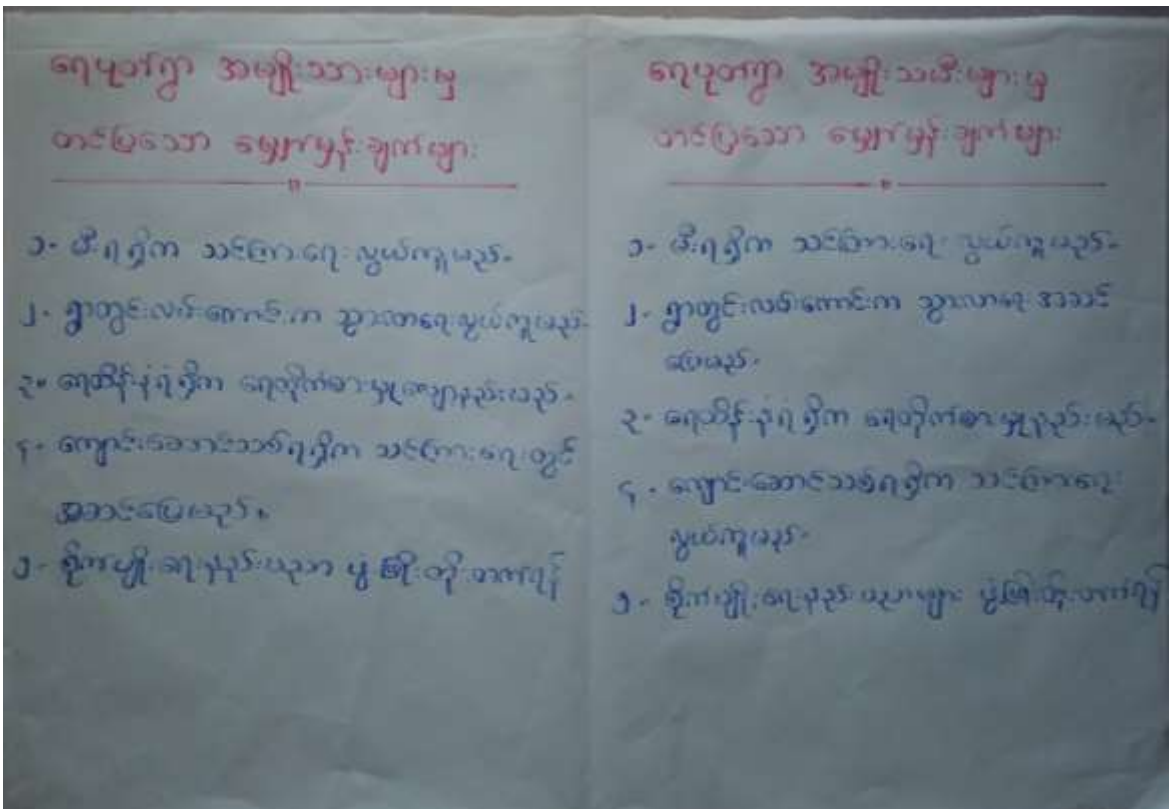 ရေပုတ်ရွာ အမျိုးသားများမှ
တင်ပြသော မျှော်မှန်းချက်များ
၁- မီးရရှိက သင်ကြားရေး လွယ်ကူမည်။
၂- ရွာတွင်းလမ်းကောင်းက သွားလာရေးလွယ်ကူမည်
၃- ရေထိန်းနံရံရှိက ရေတိုက်စားမှုလျော့နည်းမည်။
၄- ကျောင်းဆောင်သစ်ရရှိက သင်ကြားရေးတွင်
အဆင်ပြေမည်။
၅- စိုက်ပျိုးရေးနည်းပညာ ဖွံ့ဖြိုးတိုးတက်ရန်
ရေပုတ်ရွာ အမျိုးသမီးများမှ
တင်ပြသော မျှော်မှန်းချက်များ
၁- မီးရရှိက သင်ကြားရေး လွယ်ကူမည်။
၂- ရွာတွင်းလမ်းကောင်းက သွားလာရေးအဆင်
ပြေမည်။
၃- ရေထိန်းနံရံရှိက ရေတိုက်စားမှုနည်းမည်။
၄- ကျောင်းဆောင်သစ်ရရှိက သင်ကြားရေး
လွယ်ကူမည်။
၅- စိုက်ပျိုးရေးနည်းပညာများ ဖွံ့ဖြိုးတိုးတက်ရန်